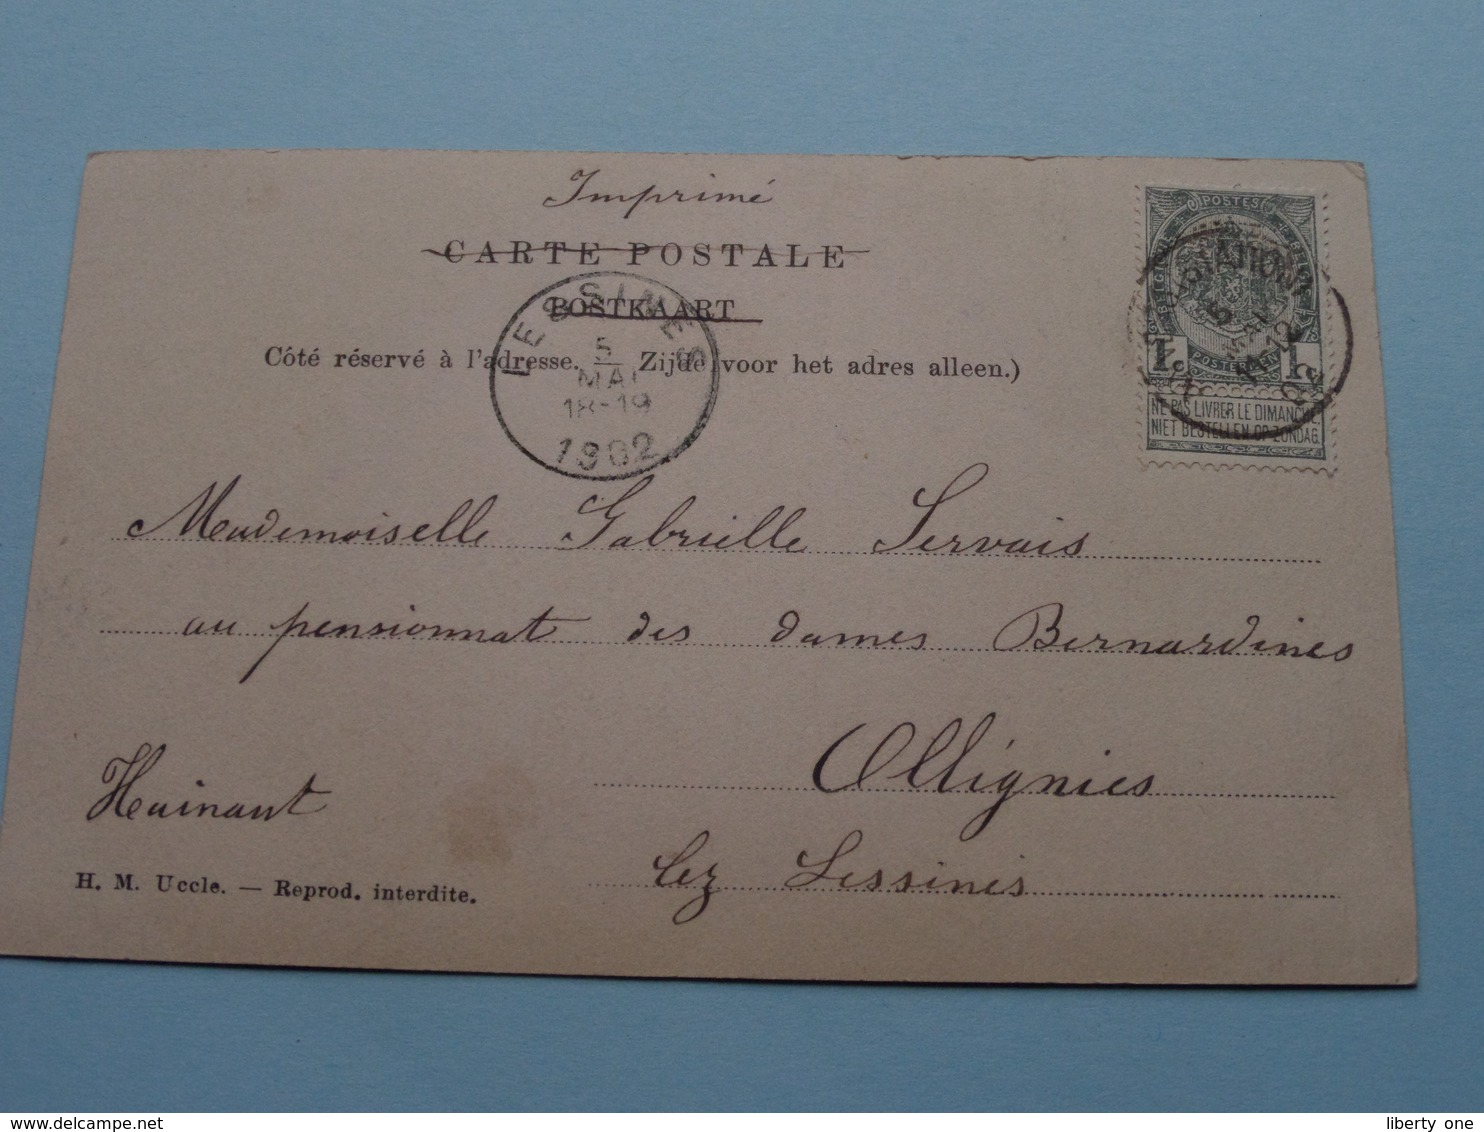 Imprimé
CARTE POSTALE
POSTKAART
Côté réservé à l'adresse. Zijde voor het adres alleen.)
LESSINES
5
MAI
18-19
1902
POSTES
1c 1c
POSTERIJEN
NE PAS LIVRER LE DIMANCHE.
NIET BESTELLEN OP ZONDAG.
Mademoiselle Gabrielle Servais
au pensionnat des dames Bernardines
Ollignies
Hainaut
lez Lessines
H. M. Uccle. — Reprod. interdite.
liberty one